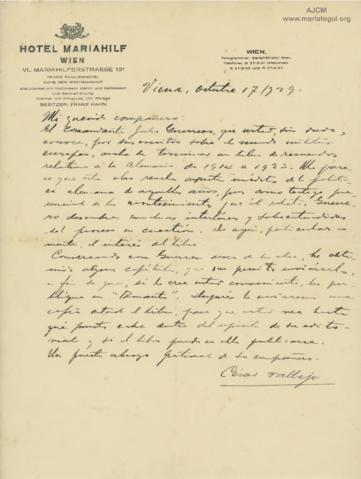 AJCM
www.mariategui.org
HOTEL MARIAHILF
WIEN
VI., MARIAHILFERSTRASSE 121
NÄHE DEM WESTBAHNHOF
BESITZER: FRANZ HAHN
WIEN,
Viena, octubre 17/929.
Mi querido compañero:
El Comandante Julio Guerrero, que usted, sin duda,
conoce, por sus escritos sobre el mundo militar
europeo, acaba de terminar un libro de recuerdos
relativos a la Alemania de 1914 a 1923. Me parece
que este libro revela aspectos inéditos de la política
alemana de aquellos años, pues como testigo presencial
de los acontecimientos que él relata, Guerrero
descubre muchas
del proceso en cuestión. De aquí, particularmente,
el interés del libro.
Conversando con Guerrero acerca de su obra, he obtenido
algunos capítulos, que me permito enviárselos,
a fin de que, si lo cree usted conveniente, los publique
en "Amauta". Después le enviaremos una
copia de todo el libro, para que usted vea hasta
qué punto cabe dentro del espíritu de su editorial
y si el libro puede en ella publicarse.
Un fuerte abrazo fraternal de su compañero.
César Vallejo